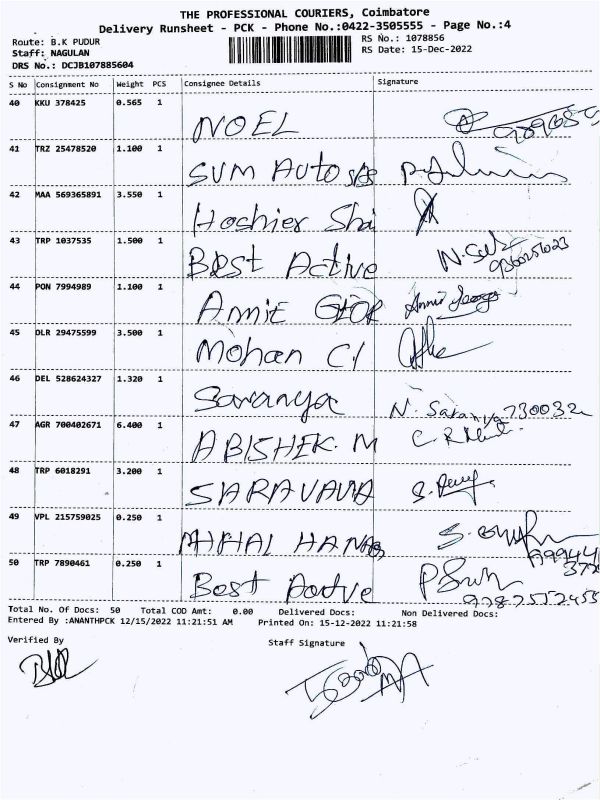 THE PROFESSIONAL COURIERS, Coimbatore
Delivery Runsheet - PCK - Phone No.:0422-3505555 - Page No.:4
Route: B.K PUDUR
RS No.: 1078856
Staff: NAGULAN
RS Date: 15-Dec-2022
DRS No.: DCJB107885604
S No Consignment No Weight PCS Consignee Details Signature
40 KKU 378425 0.565 1 NOEL
41 TRZ 25478520 1.100 1 SUM AUTO
42 MAA 569365891 3.550 1 Hoshier Sha
43 TRP 1037535 1.500 1 Best Active
44 PON 7994989 1.100 1 Annie GEOR Annie George
45 DLR 29475599 3.500 1 Mohan C/
46 DEL 528624327 1.320 1 Saranya N. Saranya 730032
47 AGR 700402671 6.400 1 ABISHEK. M
48 TRP 6018291 3.200 1 SARAVANA
49 VPL 215759025 0.250 1
50 TRP 7890461 0.250 1 Best Active
Total No. Of Docs: 50 Total COD Amt: 0.00 Delivered Docs: Non Delivered Docs:
Entered By :ANANTHPCK 12/15/2022 11:21:51 AM Printed On: 15-12-2022 11:21:58
Verified By
Staff Signature